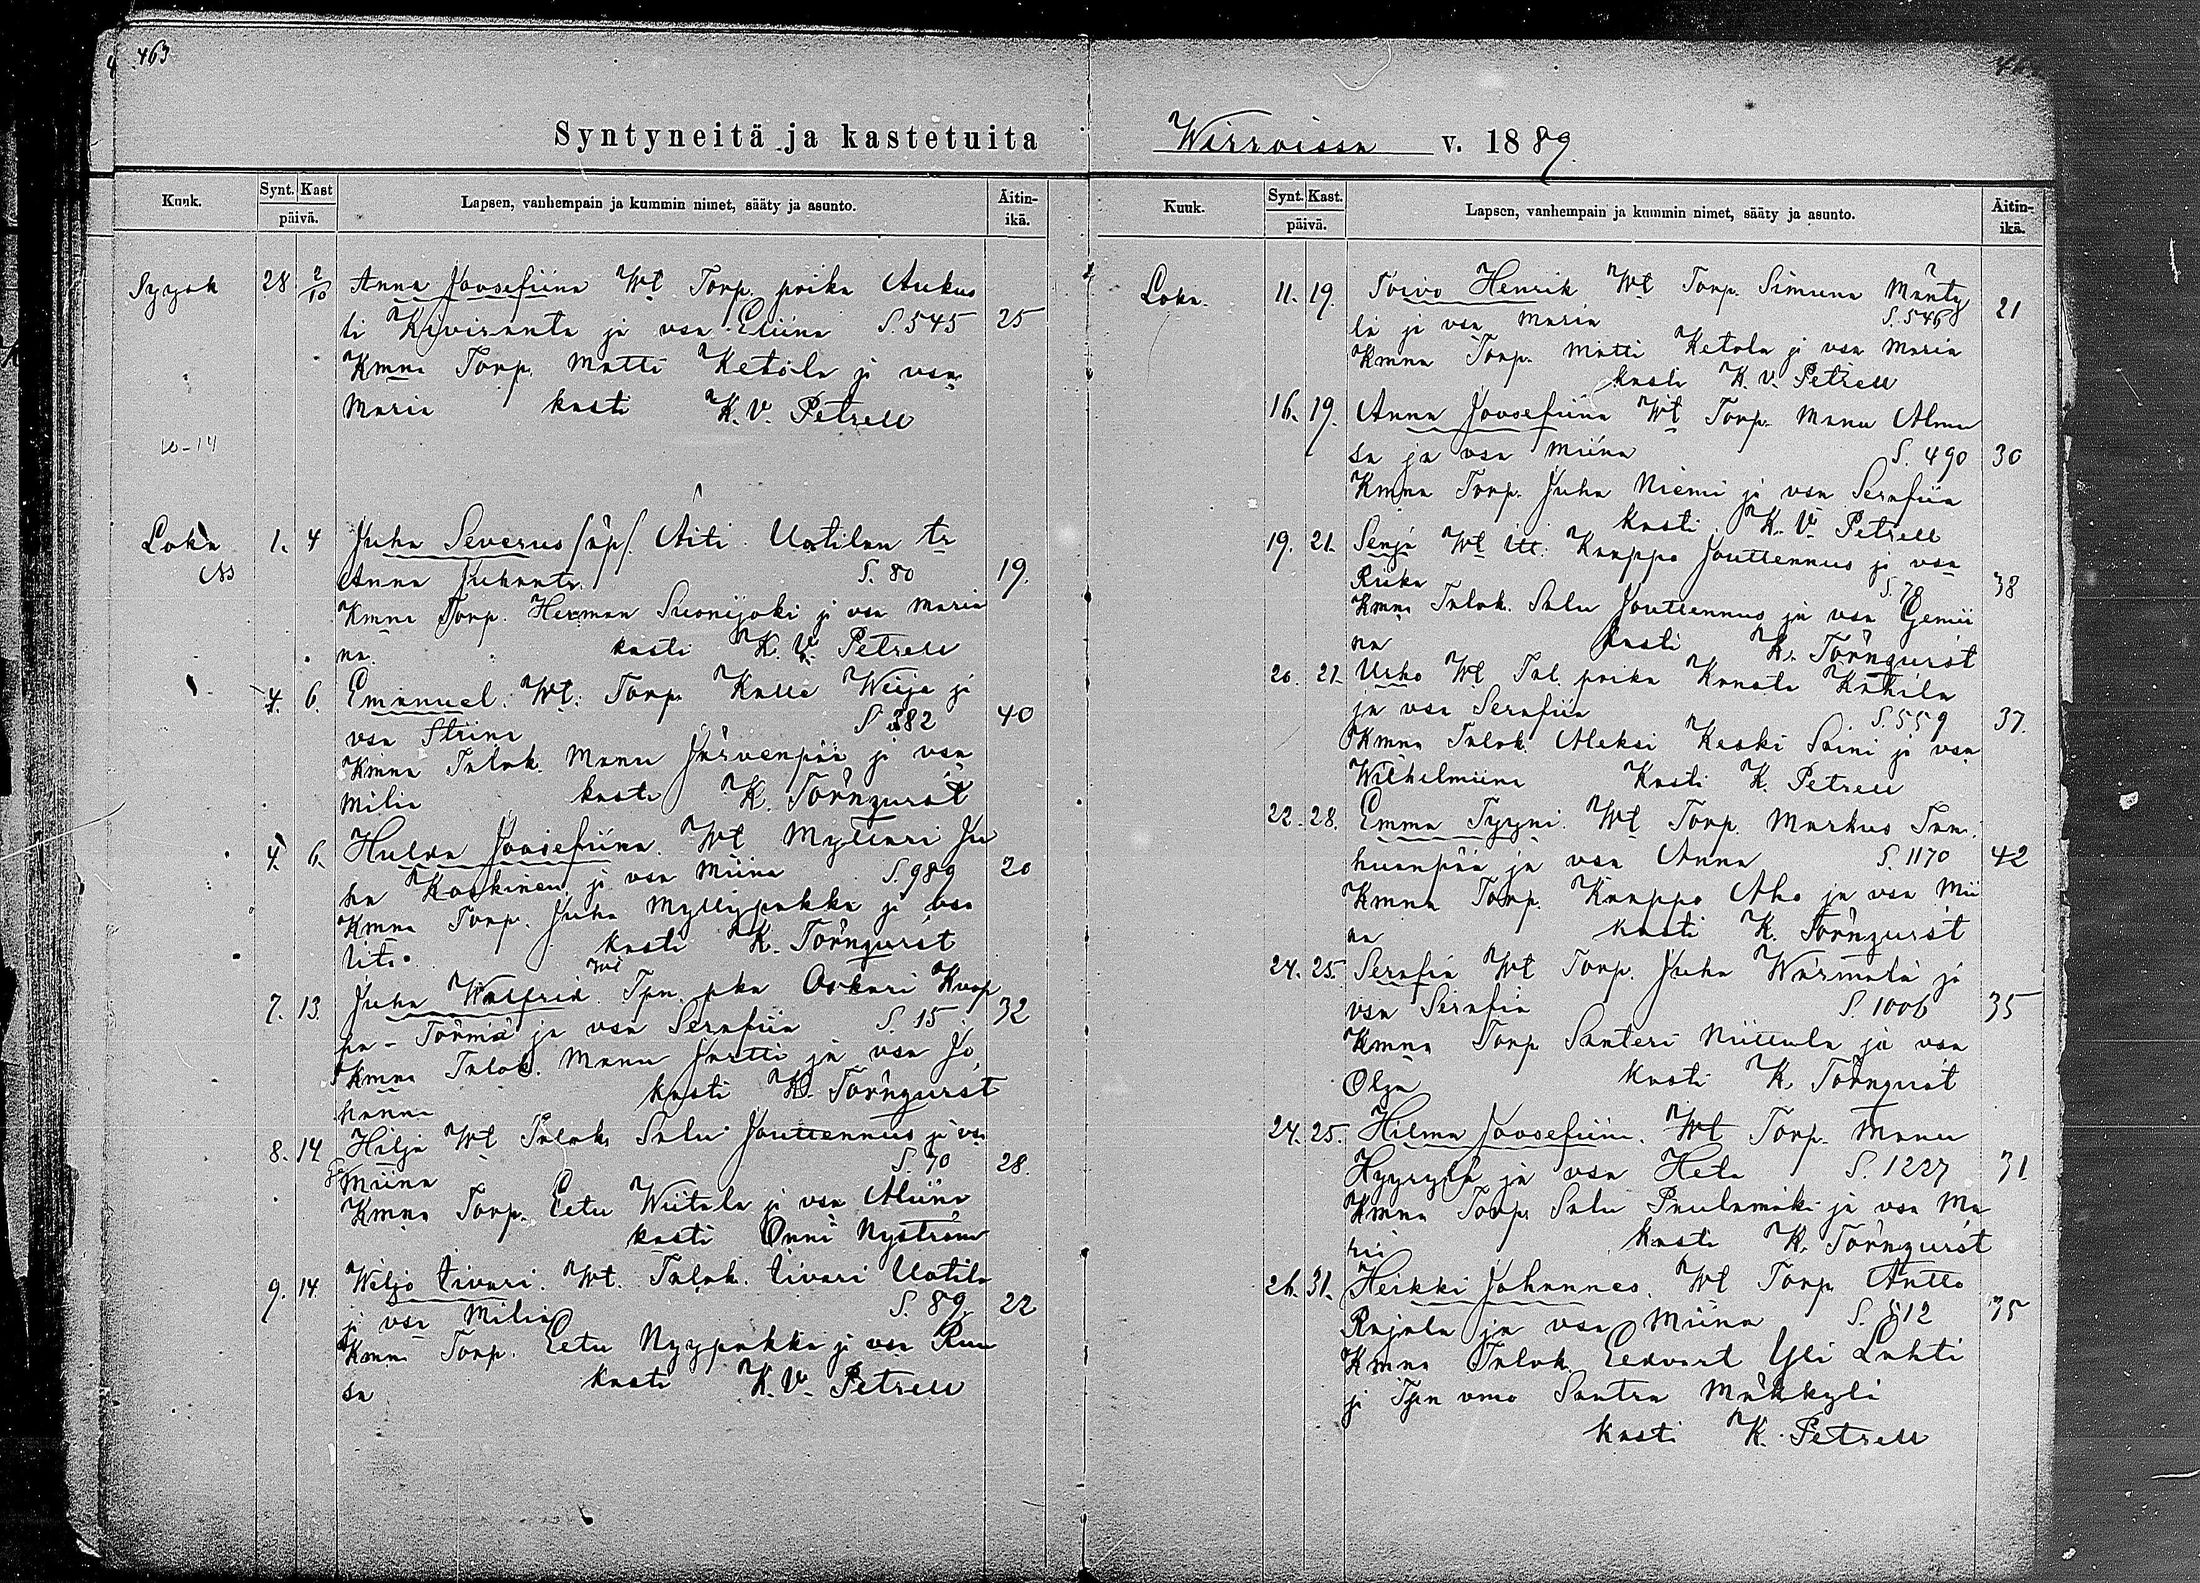 463
Syntyneitä ja kastetuita
Kuuk.
Synt. Kast
päivä.
Lapsen, vanhempain ja kummin nimet, sääty ja asunto.
Äitin-
ikä.
Syysk 28 2/10 Anna Joosefiina Wt Torp. poika Aukus
ti Kiviranta ja vsa Eliina S. 545 25
Kmna Torp. Matti Ketola ja vsa
Maria kasti K. V. Petrell
10-14
Loka 1. 4 Juha Severus (äp). Äiti Uotilan tr
Anna Juhantr. S. 80 19.
Kmna Torp. Herman Suonijoki ja vsa Maria
na. kasti K. V. Petrell
4. 6. Emanuel. Wt. Torp. Kalle Weija ja
vsa Stiina S 382 40
Kmna Talok. Manu Järvenpää ja vsa
Milia kasti K. Törnqvist
4. 6. Hulda Joosefiina. Wt Mylläri Ju
ha Koskinen ja vsa Miina S. 989 20
Kmna Torp. Juha Myllypakka ja vsa
kasti K. Törnqvist
7. 13. Juha Walfrid. Wt Tpn. pka Oskari Kuop
pa-Törmä ja vsa Serafiia S. 15 32
Kmna Talok. Manu Jartti ja vsa Jo
hanna kasti K. Törnqvist
8. 14 Hilja Wt Talok. Salu Jouttennus ja vsa
Miina S. 70 28.
Kmna Torp. Eetu Wiitala ja vsa Aliina
kasti Onni Nyström
9. 14 Weljo Iivari. Wt. Talok. Iivari Uotila
ja vsa Milia S. 89 22
Kmna Torp. Eetu Nyypakka ja vsa Ruu
sa kasti K. V. Petrell
Wirroissa v. 1889.
Kuuk.
Synt. Kast.
päivä.
Lapsen, vanhempain ja kummin nimet, sääty ja asunto.
Äitin-
ikä.
Loka. 11. 19. Toivo Henrik Wt Torp. Simuna Mänty
lä ja vsa Maria S. 546 21
Kmna Torp. Matti Ketola ja vsa Maria
kasti K. V. Petrell
16. 19. Anna Joosefiina Wt Torp. Manu Alma
sa ja vsa Miina S. 490 30
Kmna Torp. Juha Niemi ja vsa Serafiia
kasti K. V. Petrell
19. 21. Senja Wt Itl. Kaappo Jouttennus ja vsa
Riika S. 78 38
Kmna Talok. Salu Jouttennus ja vsa Gemii
na kasti K. Törnqvist
20. 21. Urho Wt Tal. poika Kanata Kähila
ja vsa Serafiia S. 559 37.
Kmna Talok. Aleksi Keski Soini ja vsa
Wilhelmiina Kasti K. Petrell
22. 28. Emma Tyyni. Wt Torp. Markus Tan
huanpää ja vsa Anna S 1170 42
Kmna Torp. Kaappo Aho ja vsa Mii
na kasti K. Törnqvist
24. 25. Serafia Wt Torp. Juha Wärmälä ja
vsa Serafia S. 1006 35
Kmna Torp Santeri Niittula ja vsa
Olga kasti K. Törnqvist
24. 25. Hilma Joosefiina. Wt Torp. Manu
Hyyrylä ja vsa Heta S. 1227 31
Kmna Torp. Salu Paulamäki ja vsa Ma
ria kasti K. Törnqvist
26. 31. Heikki Johannes. Wt Torp. Antto
Rajala ja vsa Miina S. 812 35
Kmna Talok. Eedvart Yli Lahti
ja Tpn vmo Santra Mäkkyli
kasti K. Petrell